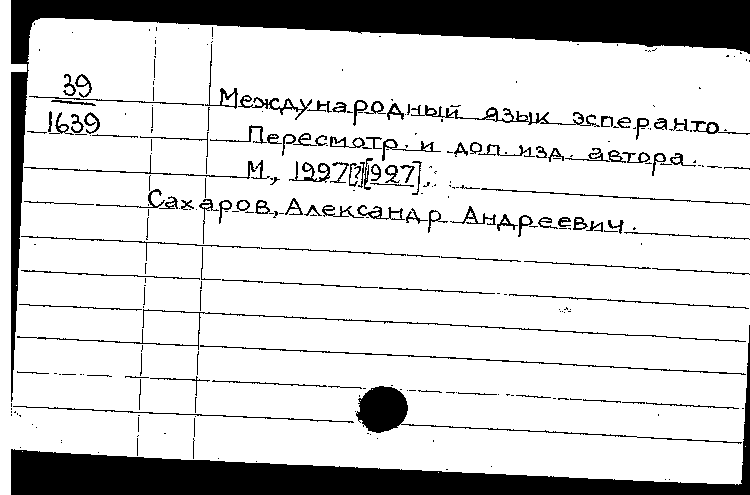 39
1639
Международный язык эсперанто.
Пересмотр. и доп. изд. автора.
М., 1997[?][927].
Сахаров, Александр Андреевич.